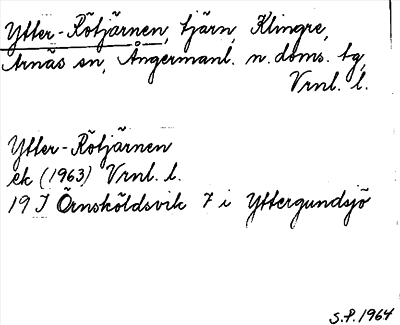 Ytter-Rötjärnen, tjärn, Klingre,
Arnäs sn, Ångermanl. n. doms. tg,
Vrnl. l.
Ytter-Rötjärnen
ek (1963) Vrnl. l.
19 I Örnsköldsvik 7 i Yttergundsjö
S.P. 1964